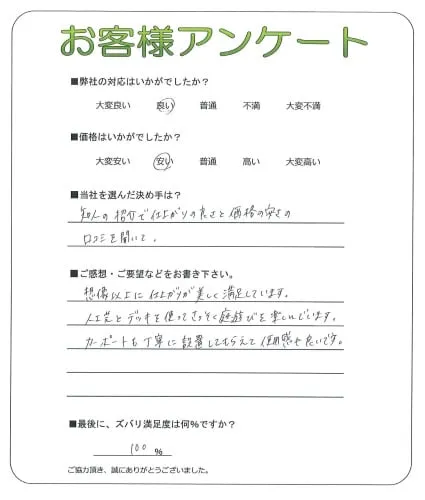 お客様アンケート
■弊社の対応はいかがでしたか?
大変良い 良い 普通 不満 大変不満
■価格はいかがでしたか?
大変安い 安い 普通 高い 大変高い
■当社を選んだ決め手は?
知人の紹介で仕上がりの良さと価格の安さの
口コミを聞いて。
■ご感想・ご要望などをお書き下さい。
想像以上に仕上がりが美しく満足しています。
人工芝とデッキを使ってさっそく庭遊びを楽しんでいます。
カーポートも丁寧に設置してもらえて使用感も良いです。
■最後に、ズバリ満足度は何%ですか?
100 %
ご協力頂き、誠にありがとうございました。